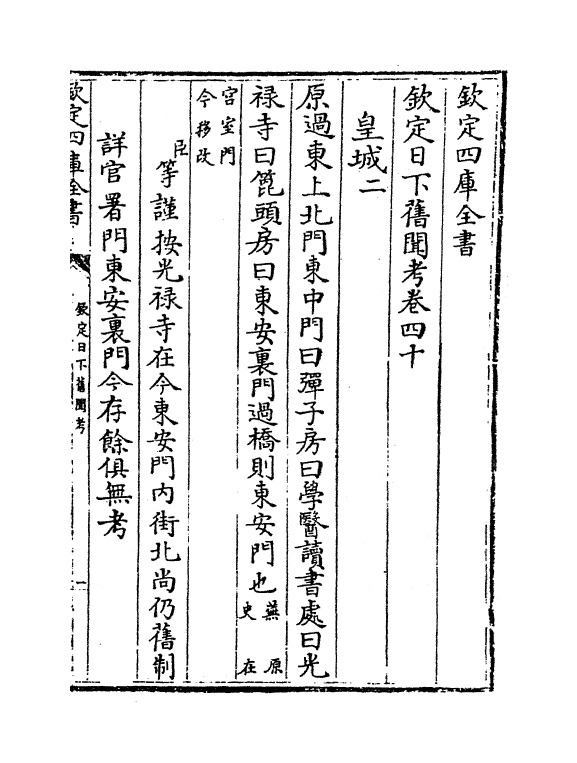 欽定四庫全書
欽定日下舊聞考卷四十
皇城二
原過東上北門東中門曰彈子房曰學醫讀書處曰光
祿寺曰篦頭房曰東安裏門過橋則東安門也蕪史 原在
宮室門今移改
臣等謹按光祿寺在今東安門内街北尚仍舊制
詳官署門東安裏門今存餘俱無考
欽定四庫全書
欽定日下舊聞考
一